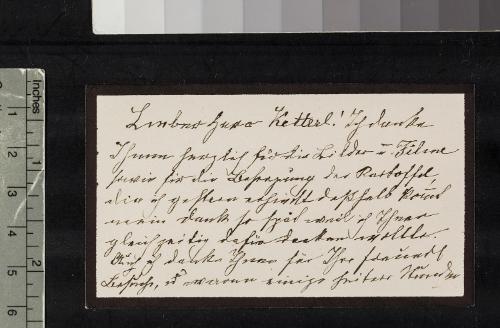 Inches
1 1
2
3 1
4
5 2
6
Lieber Herr Ketterl! Ich danke
Ihnen herzlich für die Bilder u. Filme
sowie für die Besorgung der Kartoffel
die ich gestern erhielt deßhalb kommt
mein Dank so spät weil ich Ihnen
gleichzeitig dafür danken wollte.
ich danke Ihnen für Ihre freundl
Besuche, u waren einige heitere Stunden